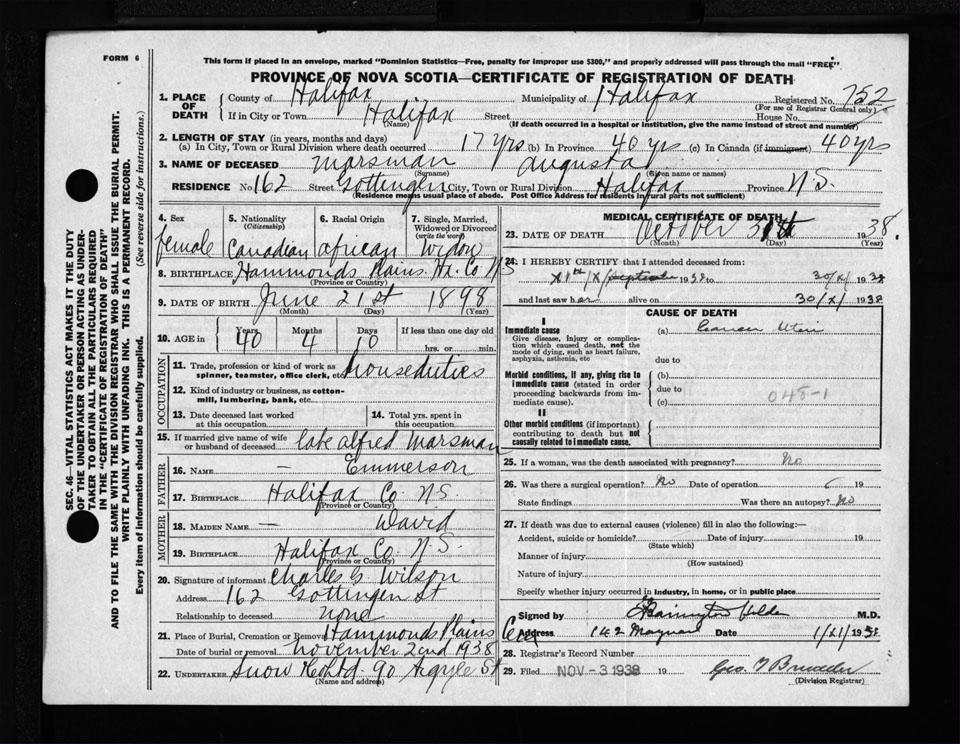 FORM 6
This form if placed in an envelope, marked "Dominion Statistics—Free, penalty for improper use $300," and properly addressed will pass through the mail "FREE"
PROVINCE OF NOVA SCOTIA—CERTIFICATE OF REGISTRATION OF DEATH
1. PLACE OF DEATH County of Halifax Municipality of Halifax Registered No. 752
(For use of Registrar General only)
If in City or Town Halifax Street House No.
(Name) (If death occurred in a hospital or institution, give the name instead of street and number)
2. LENGTH OF STAY (in years, months and days)
(a) In City, Town or Rural Division where death occurred 17 yrs (b) In Province 40 yrs (c) In Canada (if immigrant) 40 yrs
3. NAME OF DECEASED Marsman Augusta
(Surname) (Given name or names)
RESIDENCE No. 162 Street Gottingen City, Town or Rural Division Halifax Province N.S.
(Residence means usual place of abode. Post Office Address for residents in rural parts not sufficient)
4. Sex 5. Nationality (Citizenship) 6. Racial Origin 7. Single, Married, Widowed or Divorced (write the word)
female Canadian African Widow
8. BIRTHPLACE Hammonds Plains Hx. Co N S
(Province or Country)
9. DATE OF BIRTH June 21st 1898
(Month) (Day) (Year)
10. AGE in Years Months Days If less than one day old
40 4 10 hrs. or min.
OCCUPATION
11. Trade, profession or kind of work as spinner, teamster, office clerk, etc. houseduties
12. Kind of industry or business, as cotton-mill, lumbering, bank, etc.
13. Date deceased last worked at this occupation
14. Total yrs. spent in this occupation
15. If married give name of wife or husband of deceased late Alfred Marsman
FATHER
16. NAME — Emmerson
17. BIRTHPLACE Halifax Co N.S.
(Province or Country)
MOTHER
18. MAIDEN NAME — David
19. BIRTHPLACE Halifax Co. N.S.
(Province or Country)
20. Signature of informant Charles G. Wilson
Address 162 Gottingen St
Relationship to deceased none
21. Place of Burial, Cremation or Removal Hammonds Plains
Date of burial or removal November 2nd 1938
22. UNDERTAKER Snow & Co Ltd 90 Argyle St
(Name and address)
MEDICAL CERTIFICATE OF DEATH
23. DATE OF DEATH October 31st 1938.
(Month) (Day) (Year)
24. I HEREBY CERTIFY that I attended deceased from:
1938 to 30/X/1938
and last saw her alive on 30/X/1938
CAUSE OF DEATH
I
Immediate cause
Give disease, injury or complication which caused death, not the mode of dying, such as heart failure, asphyxia, asthenia, etc
(a) Cancer Uteri
due to
Morbid conditions, if any, giving rise to immediate cause (stated in order proceeding backwards from immediate cause).
(b)
due to
(c)
048-1
II
Other morbid conditions (if important) contributing to death but not causally related to immediate cause.
25. If a woman, was the death associated with pregnancy? No
26. Was there a surgical operation? No Date of operation 19
State findings Was there an autopsy? No
27. If death was due to external causes (violence) fill in also the following:—
Accident, suicide or homicide? Date of injury 19
(State which)
Manner of injury
(How sustained)
Nature of injury
Specify whether injury occurred in industry, in home, or in public place
Signed by M.D.
Address 142 Maynard Date 1/XI/1938
28. Registrar's Record Number
29. Filed NOV - 3 1938 19
(Division Registrar)
SEC. 46—VITAL STATISTICS ACT MAKES IT THE DUTY OF THE UNDERTAKER OR PERSON ACTING AS UNDERTAKER TO OBTAIN ALL THE PARTICULARS REQUIRED IN THE "CERTIFICATE OF REGISTRATION OF DEATH" AND TO FILE THE SAME WITH THE DIVISION REGISTRAR WHO SHALL ISSUE THE BURIAL PERMIT.
WRITE PLAINLY WITH UNFADING INK. THIS IS A PERMANENT RECORD.
Every item of information should be carefully supplied. (See reverse side for instructions.)